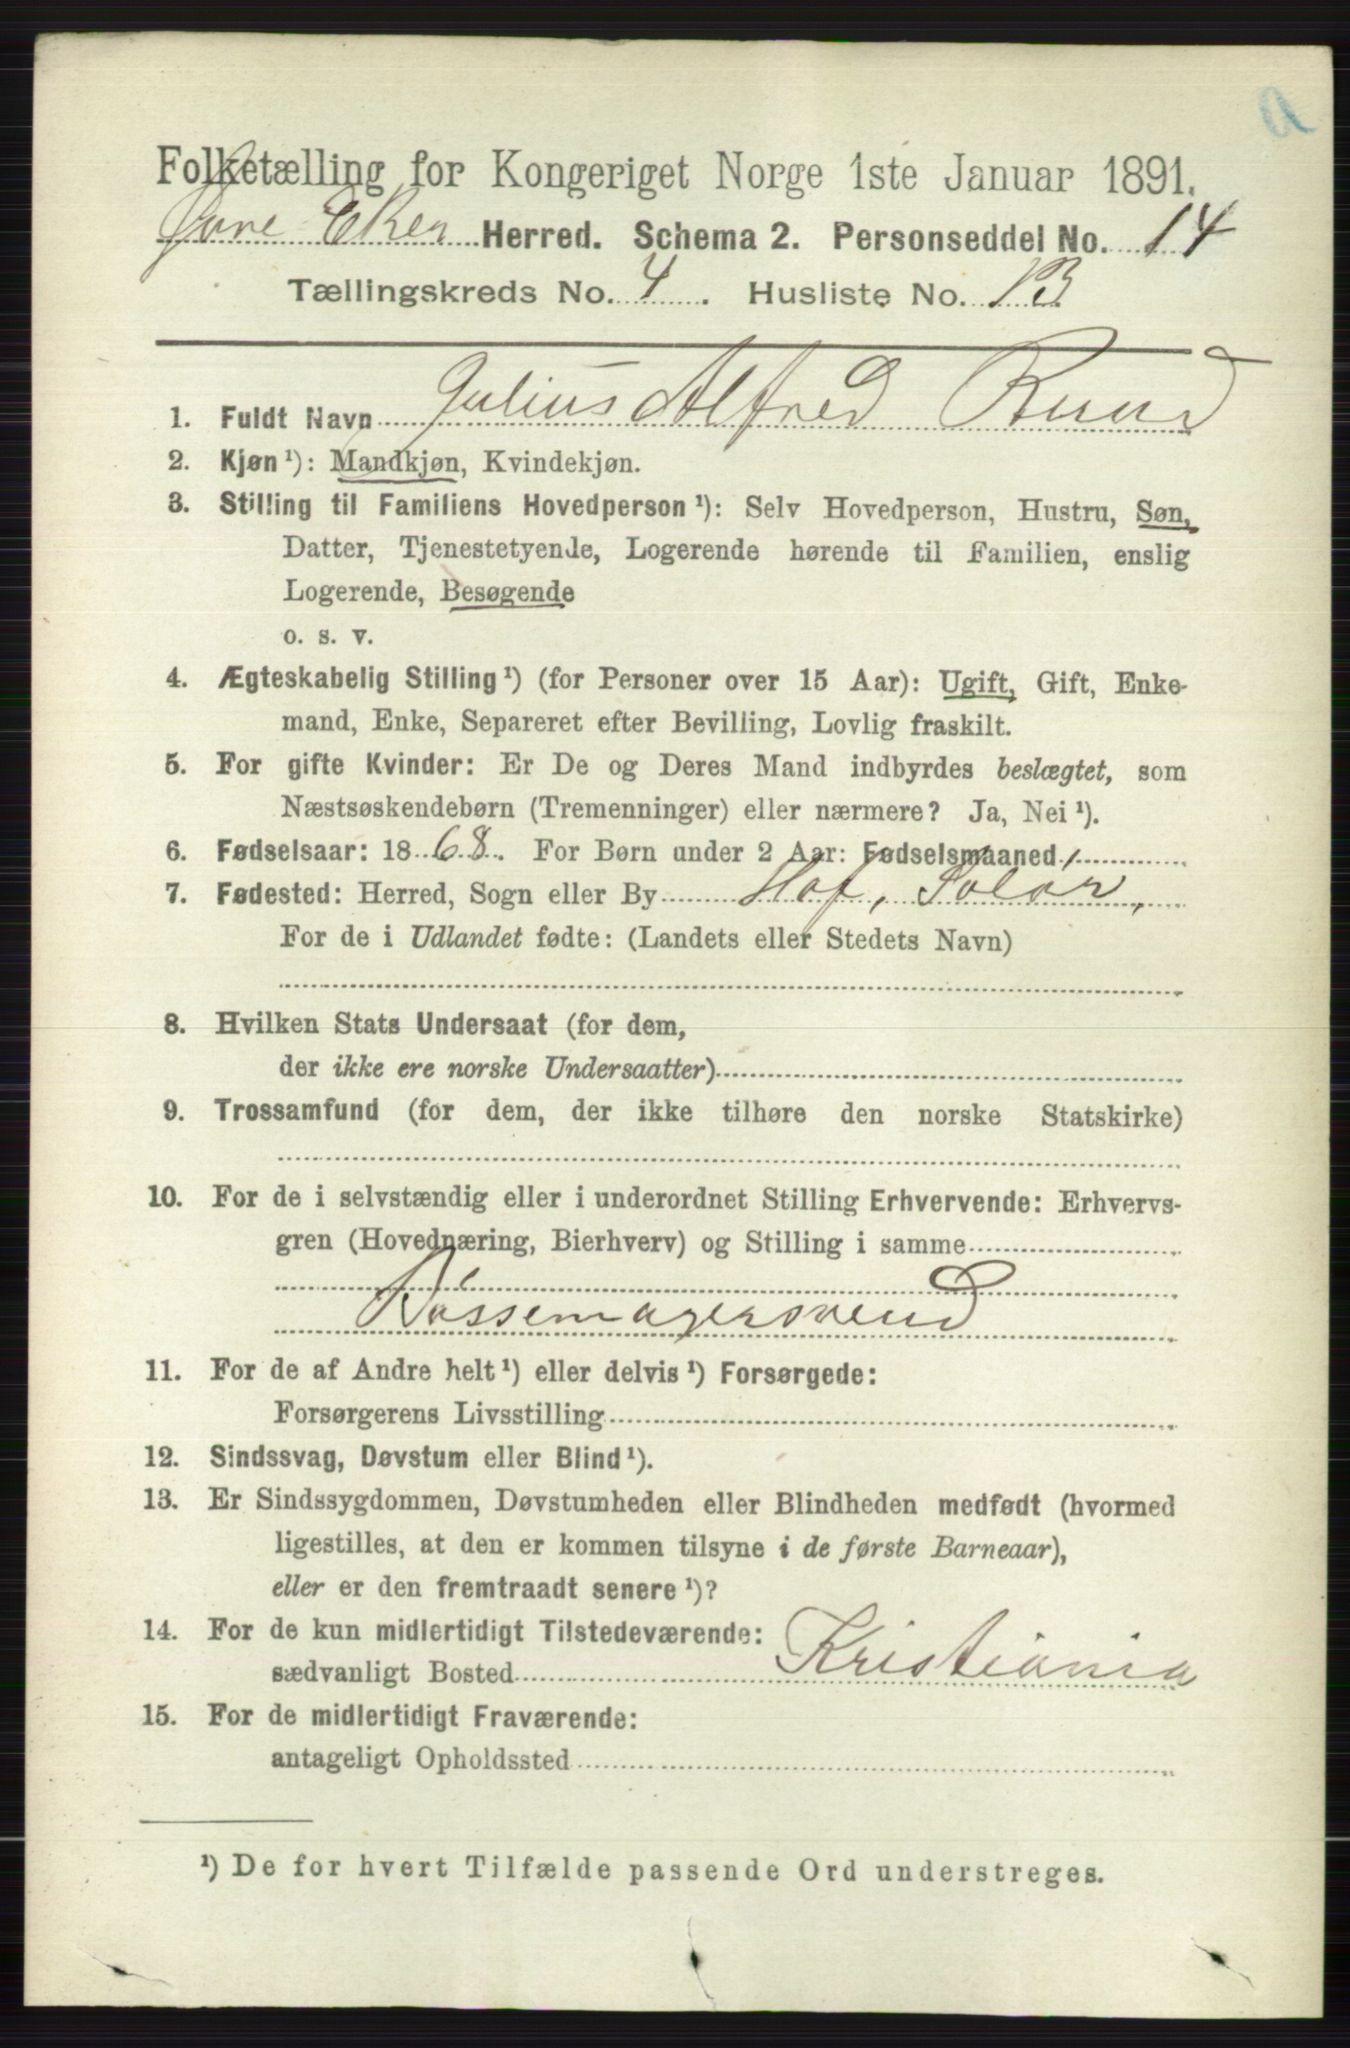 a
Folketælling for Kongeriget Norge 1ste Januar 1891.
Øvre Eker Herred. Schema 2. Personseddel No. 14
Tællingskreds No. 4. Husliste No. 13
1. Fuldt Navn Julius Alfred Ruud
2. Kjøn ¹): Mandkjøn, Kvindekjøn.
3. Stilling til Familiens Hovedperson ¹): Selv Hovedperson, Hustru, Søn,
Datter, Tjenestetyende, Logerende hørende til Familien, enslig
Logerende, Besøgende
o. s. v.
4. Ægteskabelig Stilling ¹) (for Personer over 15 Aar): Ugift, Gift, Enke-
mand, Enke, Separeret efter Bevilling, Lovlig fraskilt.
5. For gifte Kvinder: Er De og Deres Mand indbyrdes beslægtet, som
Næstsøskendebørn (Tremenninger) eller nærmere? Ja, Nei ¹).
6. Fødselsaar: 1868. For Børn under 2 Aar: Fødselsmaaned
7. Fødested: Herred, Sogn eller By Hof, Solør,
For de i Udlandet fødte: (Landets eller Stedets Navn)
8. Hvilken Stats Undersaat (for dem,
der ikke ere norske Undersaatter)
9. Trossamfund (for dem, der ikke tilhøre den norske Statskirke)
10. For de i selvstændig eller i underordnet Stilling Erhvervende: Erhvervs-
gren (Hovednæring, Bierhverv) og Stilling i samme
Bøssemagersvend
11. For de af Andre helt ¹) eller delvis ¹) Forsørgede:
Forsørgerens Livsstilling
12. Sindssvag, Døvstum eller Blind ¹).
13. Er Sindssygdommen, Døvstumheden eller Blindheden medfødt (hvormed
ligestilles, at den er kommen tilsyne i de første Barneaar),
eller er den fremtraadt senere ¹)?
14. For de kun midlertidigt Tilstedeværende:
sædvanligt Bosted Kristiania
15. For de midlertidigt Fraværende:
antageligt Opholdssted
¹) De for hvert Tilfælde passende Ord understreges.